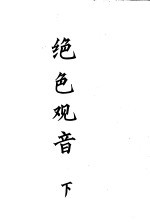 绝色观音
下